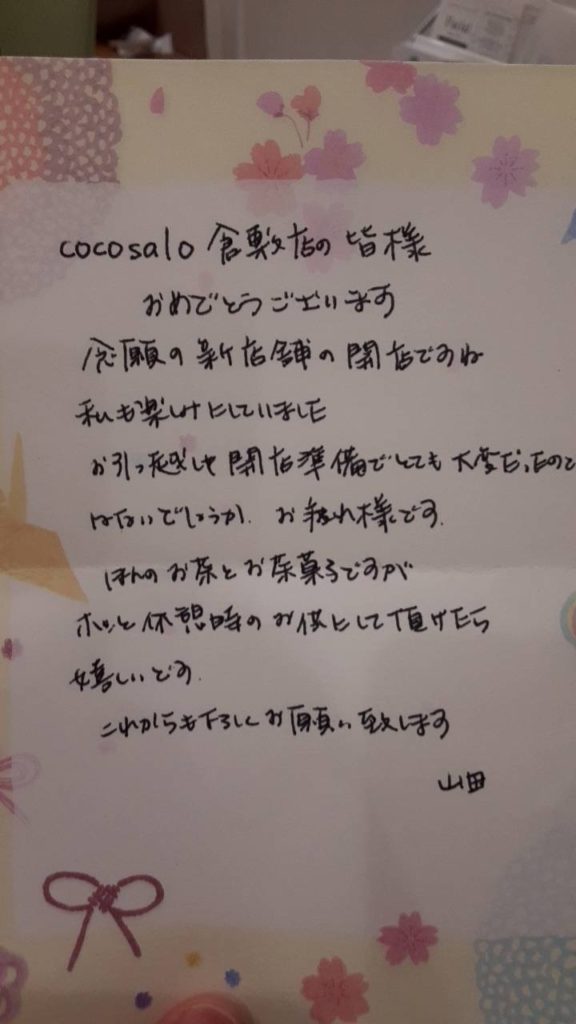 cocosalo 倉敷店の 皆様
おめでとうございます
念願の 新店舗の 開店ですね
私も楽しみにしていました
お引っ越しや 開店準備でとても 大変だったのと
はないでしょうか. お疲れ様です.
ほんの お茶と お茶菓子ですが
ホッと 休憩時の お供にして 頂けたら
嬉しいです.
これからも 下ろしく お願い 致します
山田